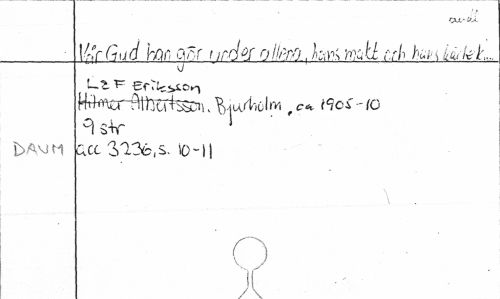 Vår Gud han gör under allena, hans makt och hans kärlek...
L & F Eriksson
Hilmer Albertsson. Bjurholm, ca 1905-10
9 str
DAUM acc 3236, s. 10-11